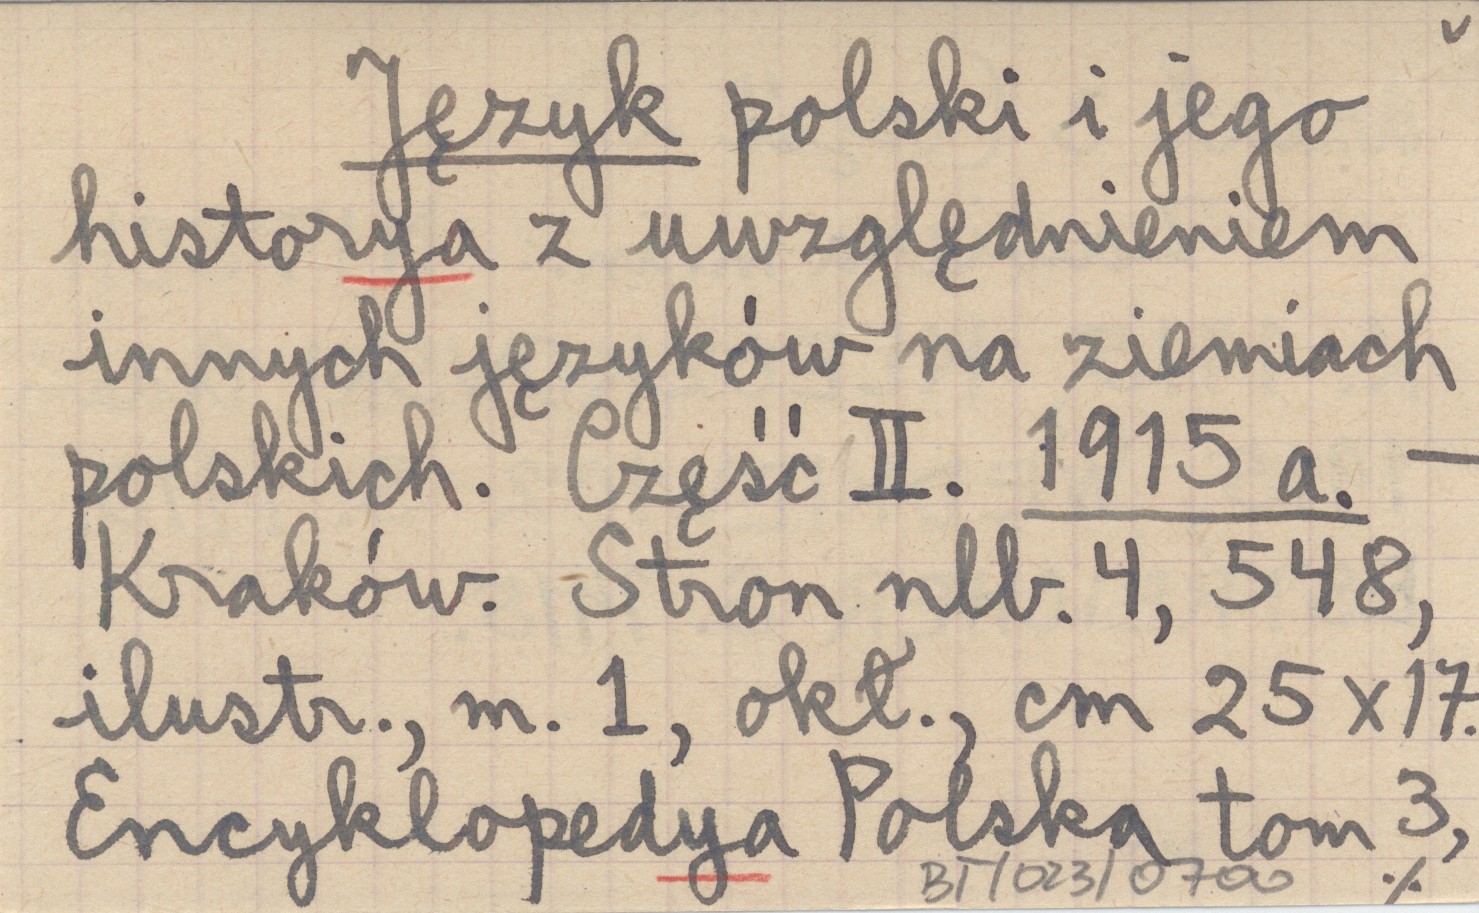 Język polski i jego
historya z uwzględnieniem
innych języków na ziemiach
polskich. Część II. 1915 a. —
Kraków. Stron nlb. 4, 548,
ilustr., m. 1, okł., cm 25 x 17.
Encyklopedya Polska tom 3,
BT/023/0700 ./.